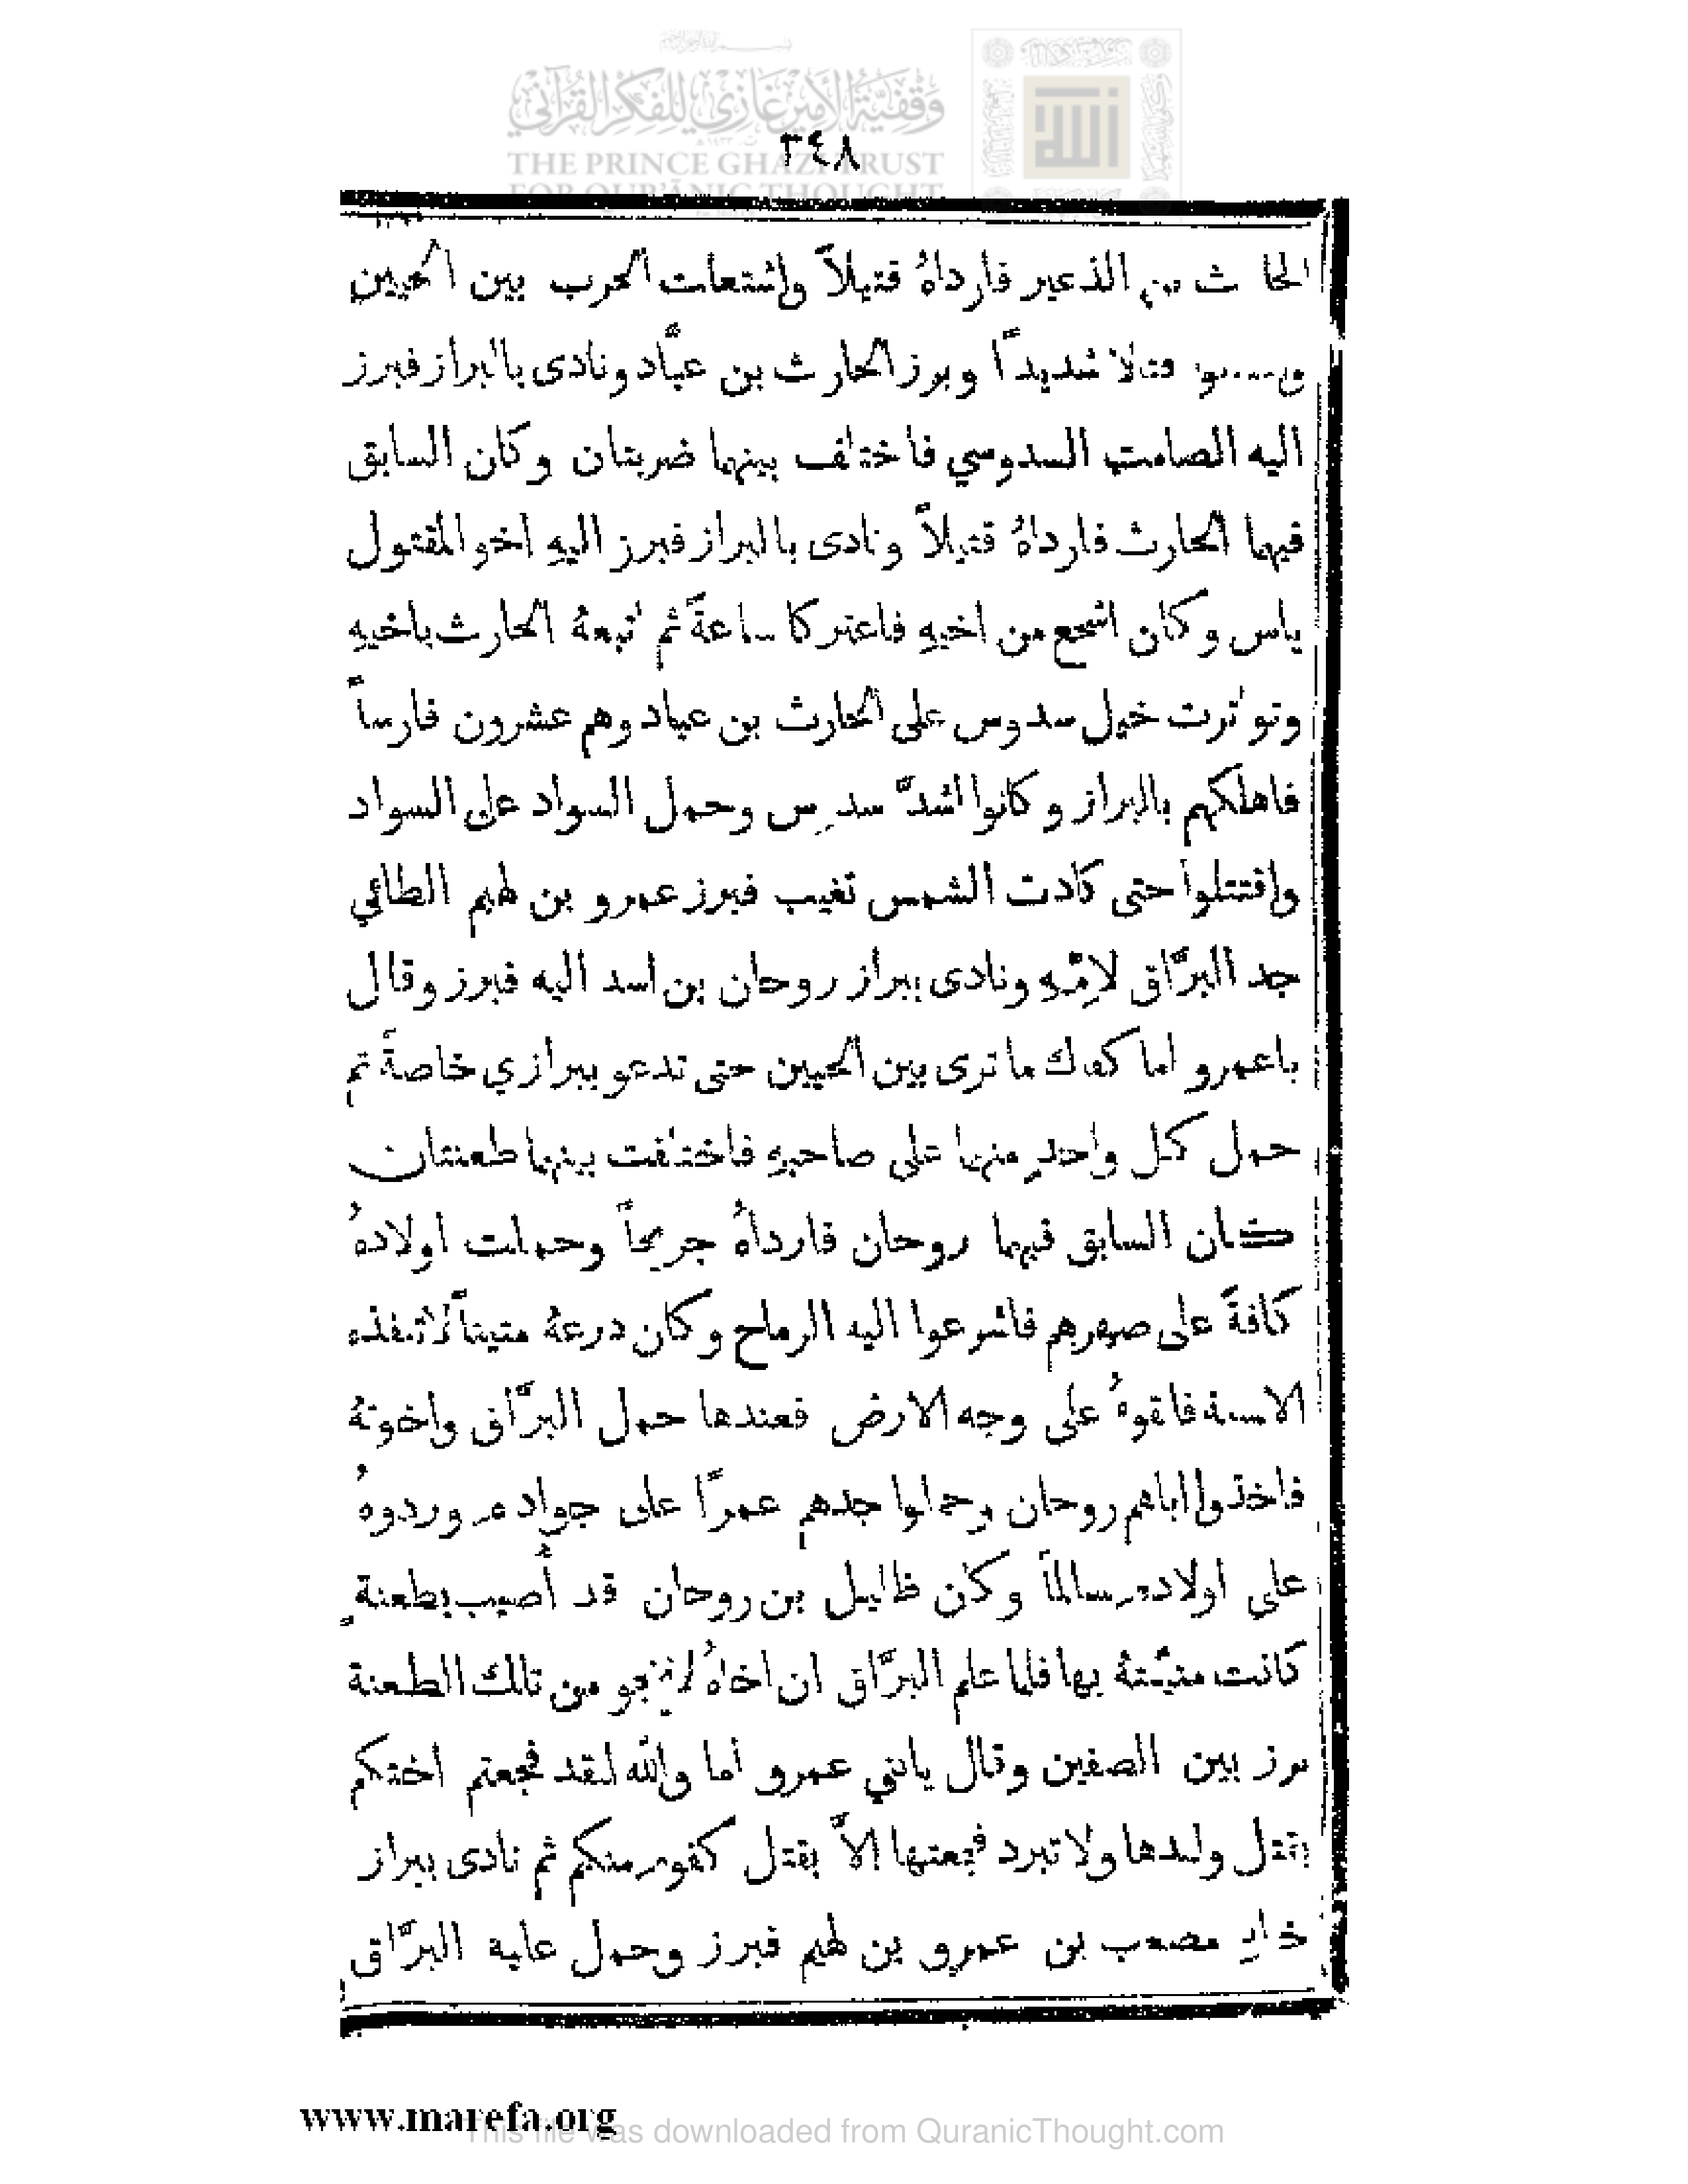 وقفية الأمير غازي للفكر القرآني
THE PRINCE GHAZI TRUST
FOR QUR'ĀNIC THOUGHT
٣٤٨
الذعير فارداهُ قتيلاً واشتعلت الحرب بين الحيين
قتالا شديداً وبرز الحارث بن عبَّاد ونادى بالبراز فبرز
اليه الصامت السدوسي فاختلف بينهما ضربتان وكان السابق
فيهما الحارث فارداهُ قتيلاً ونادى بالبراز فبرز اليهِ اخو المقتول
ياس وكان اشجع من اخيهِ فاعتركا ساعةً ثم اتبعهُ الحارث باخيهِ
وتواترت خيل سدوس على الحارث بن عباد وهم عشرون فارساً
فاهلكهم بالبراز وكانوا اشدَّ سدوس وحمل السواد على السواد
واقتتلوا حتى كادت الشمس تغيب فبرز عمرو بن لهيم الطائي
جد البرَّاق لامّهِ ونادى ببراز روحان بن اسد اليه فبرز وقال
ياعمرو اما كفاك ما ترى بين الحيين حتى تدعو ببرازي خاصةً ثم
حمل كل واحدٍ منهما على صاحبهِ فاختلفت بينهما طعنتان
كان السابق فيهما روحان فارداهُ جريحاً وحملت اولادهُ
كافةً على صهرهم فاشرعوا اليه الرماح وكان درعهُ متيناً لا تنفذه
الاسنة فالقوهُ على وجه الارض فعندها حمل البرَّاق واخوتهُ
فاخذوا اباهم روحان وحملوا جدهم عمرًا على جواده وردوهُ
على اولاده سالماً وكان ظليل بن روحان قد أُصيب بطعنةٍ
كانت منيَّتهُ بها فلما علم البرَّاق ان اخاهُ لا ينجو من تلك الطعنة
برز بين الصفين وقال يابني عمرو أما والله لقد فجعتم اختكم
بقتل ولدها ولا تبرد فجعتها الاَّ بقتل كفوء منكم ثم نادى ببراز
خاله مصعب بن عمرو بن لهيم فبرز وحمل عليه البرَّاق
www.marefa.org
This file was downloaded from QuranicThought.com